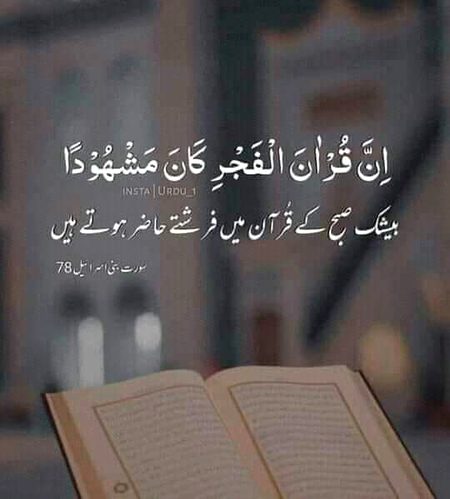 اِنَّ قُرْاٰنَ الْفَجْرِ كَانَ مَشْهُوْدًا
INSTA | URDU_1
بیشک صبح کے قُرآن میں فرشتے حاضر ہوتے ہیں
سورت بنی اسرائیل 78